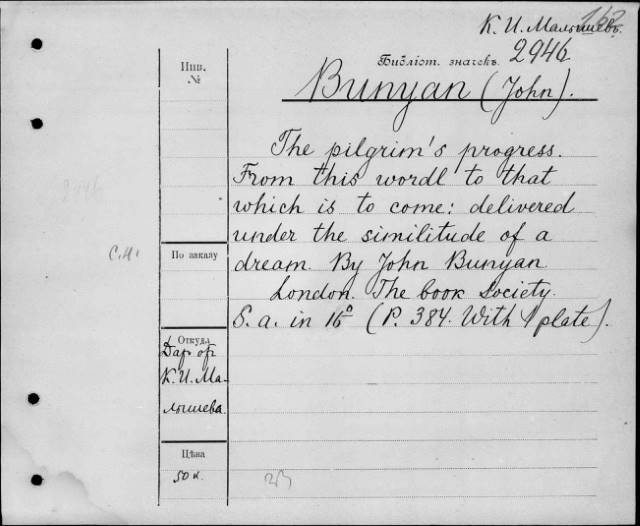 К. И. Малышевъ.
2946
Библіот. значекъ.
Bunyan (John).
Инв.
№
The pilgrim's progress.
From this wordl to that
which is to come: delivered
under the similitude of a
dream. By John Bunyan
London. The book Society.
S. a. in 16° (P. 384. With 1 plate).
2946
С.И.
По заказу
Откуда
Дар от
К. И. Ма-
лышева.
Цѣна
50 к.